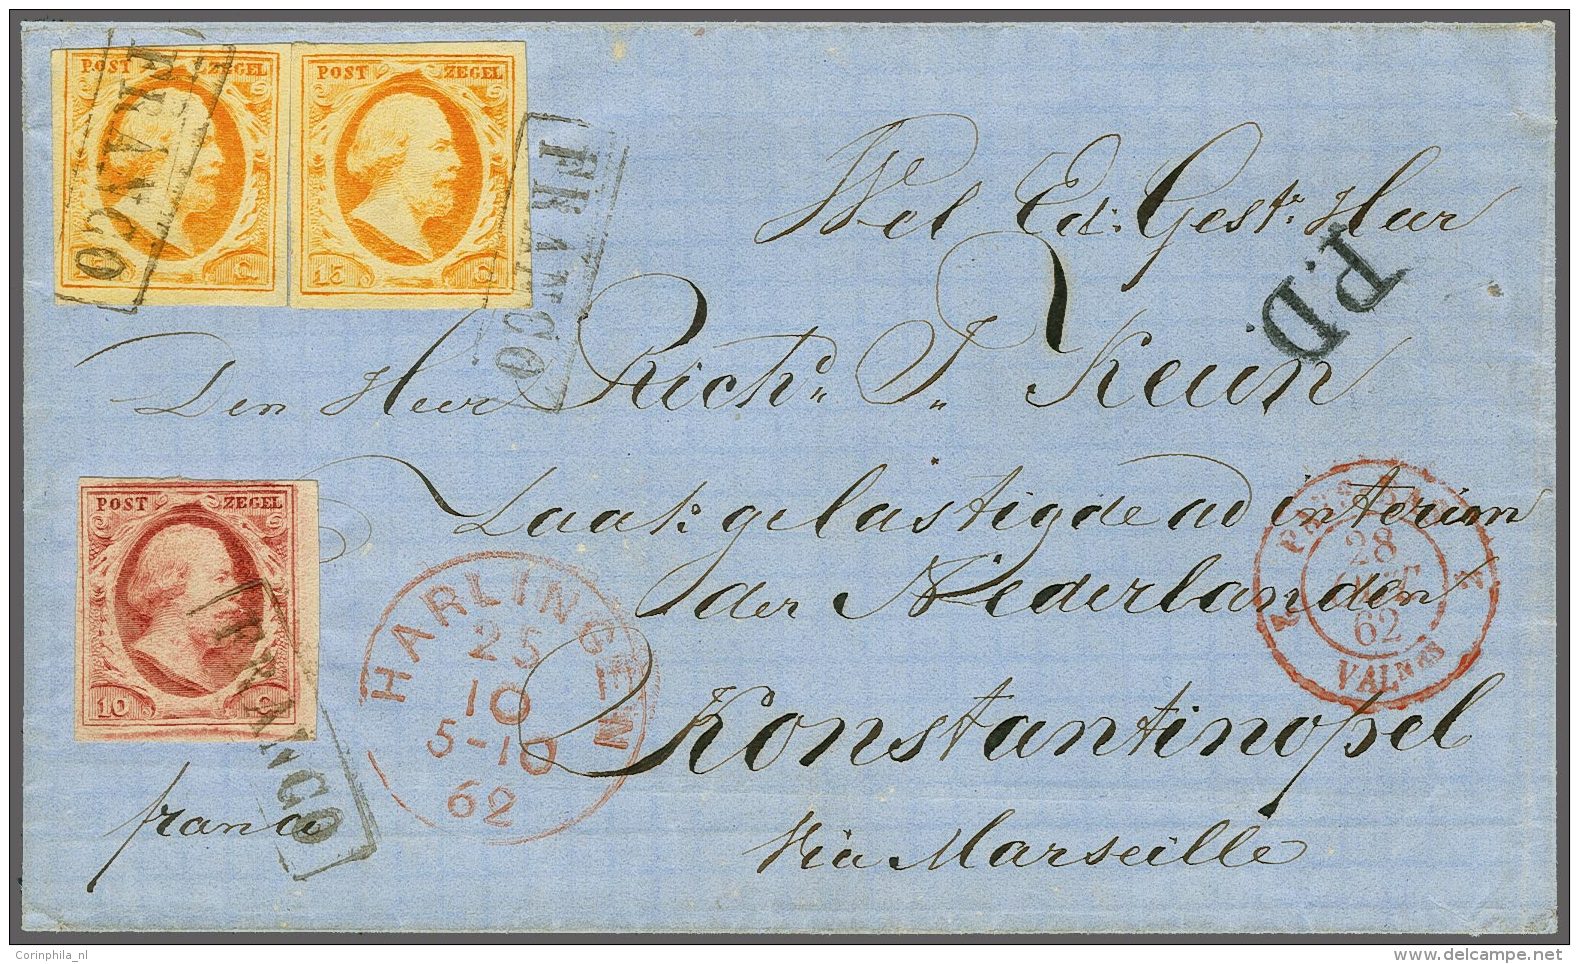 POST ZEGEL
POST ZEGEL
15 C
FRANCO
FRANCO
Wel Ed: Gestr. Heer
P.D.
Den Heer Richd. J. Keun
Zaakgelastigde ad interim
der Nederlanden
Konstantinopel
Via Marseille
franco
POST ZEGEL
10 C
FRANCO
HARLINGEN
25
10
5-10
62
28
OCT
62
VALNES
Corinphila_nl
www.delcampe.net